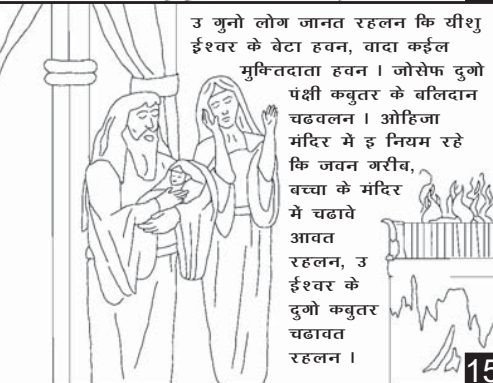 उ गुनो लोग जानत रहलन कि यीशु
ईश्वर के बेटा हवन, वादा कईल
मुक्तिदाता हवन । जोसेफ दुगो
पंक्षी कबुतर के बलिदान
चढवलन । ओहिजा
मंदिर में इ नियम रहे
कि जवन गरीब,
बच्चा के मंदिर
में चढावे
आवत
रहलन, उ
ईश्वर के
दुगो कबुतर
चढावत
रहलन ।
15